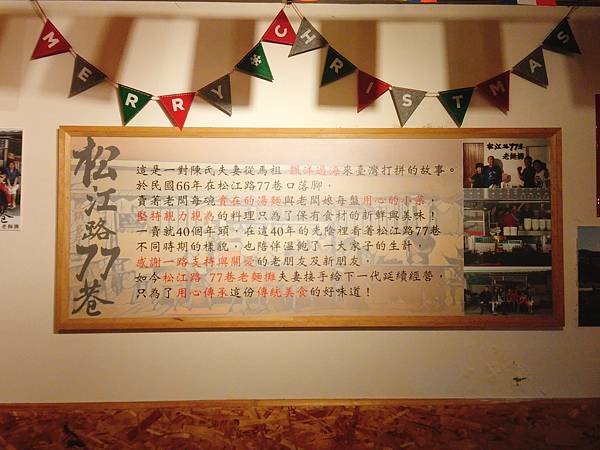 MERRY * CHRISTMAS
松江路77巷
這是一對陳氏夫妻從馬祖 飄洋過海來臺灣打拼的故事。
於民國66年在松江路77巷口落腳,
賣著老闆每碗實在的湯麵與老闆娘每盤用心的小菜,
堅持親力親為的料理只為了保有食材的新鮮與美味!
一賣就40個年頭,在這40年的光陰裡看著松江路77巷
不同時期的樣貌,也陪伴溫飽了一大家子的生計,
感謝一路支持與關愛的老朋友及新朋友,
如今松江路 77巷老麵攤夫妻接手給下一代延續經營,
只為了用心傳承這份傳統美食的好味道!
松江路77巷
老麵攤
老麵攤